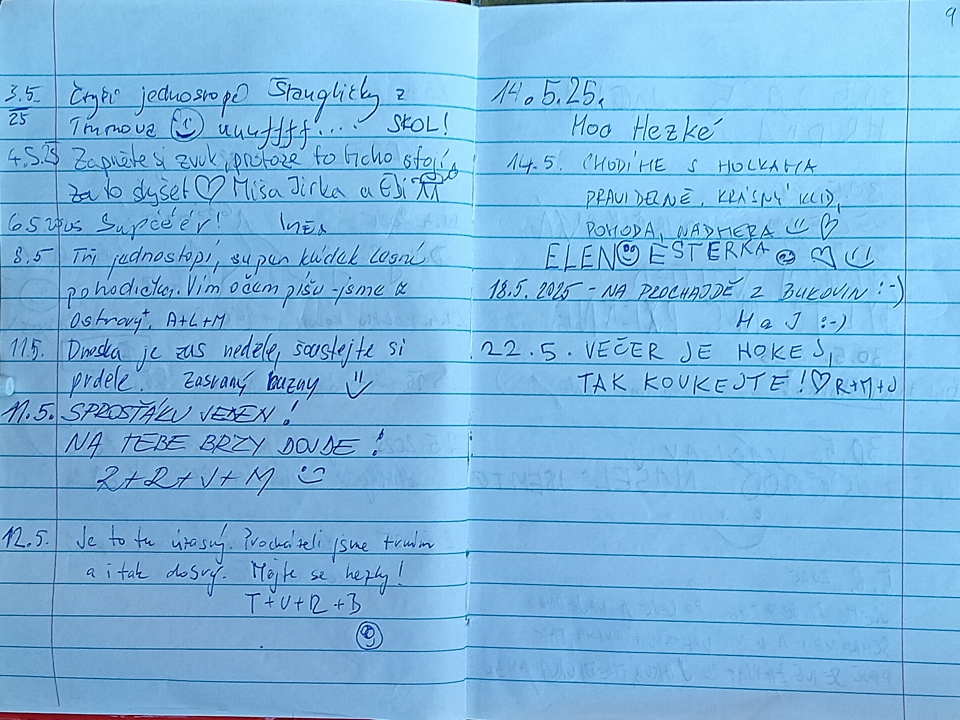 3.5. Čtyři jednostopé Štangličky z
25 Trnnova uuuffff.... SKOL!
4.5.25 Zapněte si zvuk, protože to ticho stojí
za to slyšet ♡ Míša Jirka a Eji
6.5. Supéér!
8.5 Tři jednostopí, super kúdek lesní
pohodička. Vím očem píšu - jsme z
Ostravy. A+L+M
11.5. Dneska je zas neděle, soustejte si
prdele. Zasraný buzny
11.5. SPROSŤÁKU JEDEN!
NA TEBE BRZY DOJDE!
R+R+J+M
12.5. Je to tu úžasný. Procházeli jsme trním
a i tak dobrý. Mějte se hezky!
T+V+R+B
9
14.5.25.
Moo Hezké
14.5. CHODÍME S HOLKAMA
PRAVIDELNĚ. KRÁSNÝ KLID,
POHODA, NÁDHERA ♡
ELEN ESTERKA ♡
18.5.2025 - NA PROCHAJDĚ Z BUKOVIN :-)
M a J :-)
22.5. VEČER JE HOKEJ,
TAK KOUKEJTE! ♡ R+M+J